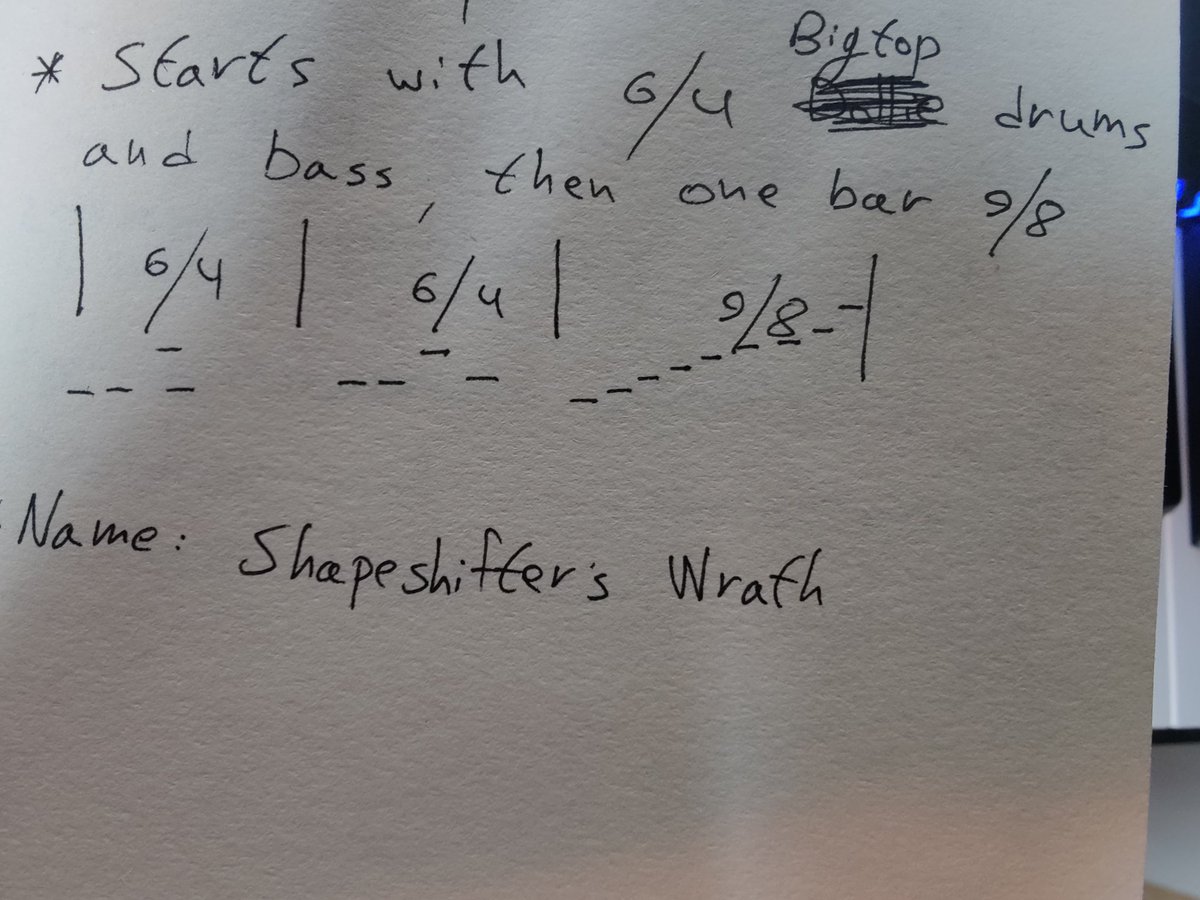 Bigtop
* Starts with 6/4 drums
and bass, then one bar 9/8
| 6/4 | 6/4 | 9/8 |
Name: Shapeshifter's Wrath